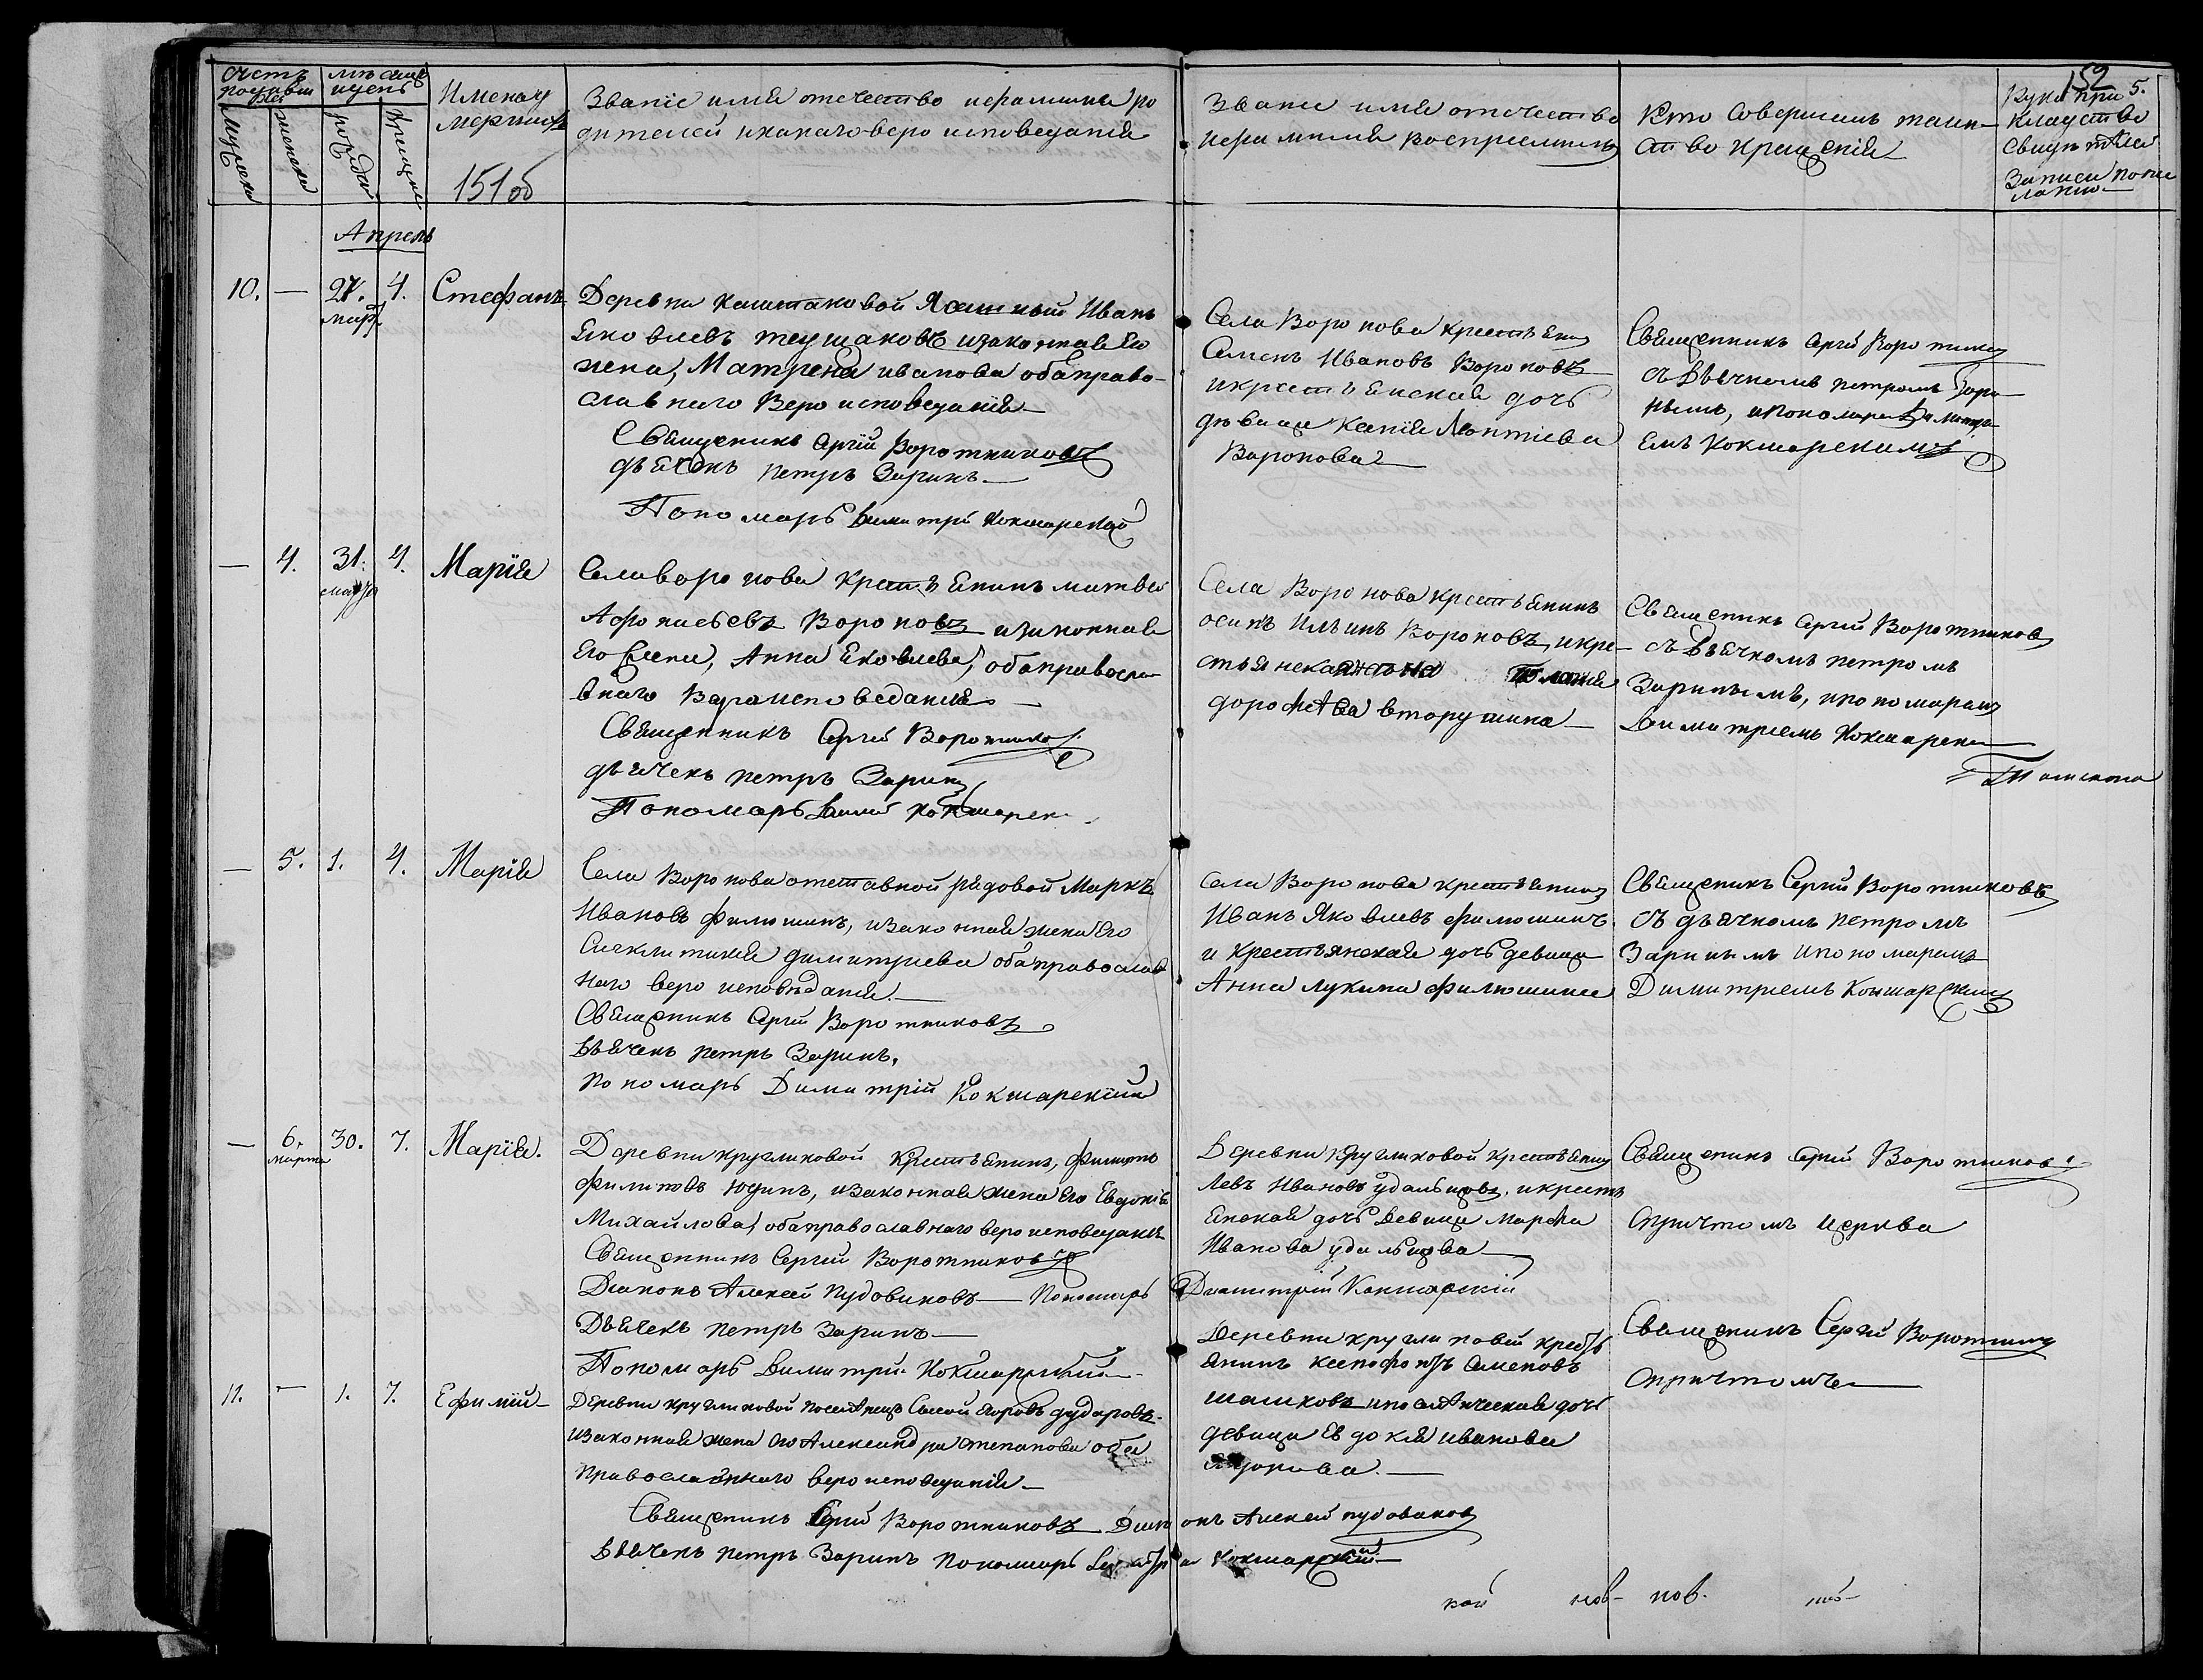 Счетъ
родивши
хся
мѣсяцъ
идень
Мужска
женска
рожден
Крещен
Имена у
мершихъ
151 об
Званіе имя отечество ифамилія ро
дителей икакаго веро исповеданія
Званіе имя отечество
ифамилія восприемниковъ
Кто совершалъ таин-
ство крещенія
152
5.
Рукоприкладство
свидетелей
Записи по же
ланію
Апрель
10. — 27. 4. Стефанъ
мар
Деревни Каштаковой Ясашной Иванъ
Яковлевъ Теушаковъ изаконная Его
жена, Матрена иванова оба право-
славнаго Веро исповеданія
Священникъ Сергій Воротниковъ
дьячекъ петръ Заринъ
Пономарь Димитрій Кокшарской
Села Воронова крестьянинъ
Семенъ Ивановъ Вороновъ
икрестьянская дочь
девица Ксенія Леонтіева
Воронова
Священникъ Сергій Воротников
съ Дьячкомъ петромъ Зари
нымъ, ипономаремъ Димитрі
емъ Кокшарскимъ
— 4. 31. 4. Марія
марта
Села воронова крестьянинъ матвей
Афонасьевъ Вороновъ изаконная
Его жена, Анна Яковлева, оба правосла-
внаго Вероисповедания
Священникъ Сергій Воротников
дьячекъ петръ Заринъ
Пономарь Димит Кокшарск
Села Воронова крестьянинъ
осипъ Ильинъ Вороновъ, икре-
стьянская жена
дорофеева вторушина
Священикъ Сергій Воротниковъ
съ Дьячкомъ петромъ
Заринымъ, ипономарем
Димитриемъ Кокшарски
— 5. 1. 4. Марія
Села Воронова отставной рядовой Маркъ
Ивановъ Филюшинъ, изаконная жена Его
Синклитикия димитриева оба православ
наго веро исповѣдания.
Священикъ Сергій Воротниковъ
Дьячекъ петръ Заринъ,
Пономарь Димитрій Кокшарскій
Села Воронова крестьянинъ
Иванъ Яковлевъ филюшинъ
и крестьянская дочь девица
Анна лукина филюшина
Священикъ Сергій Воротниковъ
съ дьячкомъ петромъ
Заринымъ ипономаремъ
Димитриемъ Кокшарским
— 6. 30. 7. Марія.
марта
Деревни кругликовой крестьянинъ, филипъ
филиповъ юдинъ, изаконная жена Его Евдокія
Михайлова, оба православнаго веро исповедания
Священникъ Сергий Воротниковъ
Диаконъ Алексей Пудовиковъ — Пономарь Димитрій Кокшарскій
Дьячекъ петръ Заринъ
Пономарь Димитрій Кокшарский
Деревни Кругликовой крестьянинъ
Левъ Ивановъ удальцовъ, икресть
янская дочь Девица Марфа
Иванова удальцова
Священикъ Сергій Воротников
спричтомъ церкви
11. — 1. 7. Ефимій
Деревни кругликовой поселенецъ Сысой Егоровъ дударовъ
изаконная жена его Александра степанова оба
православнаго веро исповеданія
Священикъ Сергій Воротниковъ Диаконъ Алексей пудовиков
Дьячекъ петръ Заринъ Пономарь Димитрій Кокшарский
Деревни кругликовой кресть
янинъ ксенофонтъ семеновъ
шашковъ ипоселенческая дочь
девица Евдокия иванова
Священикъ Сергій Воротников
спричтомъ
кой нов- нов.